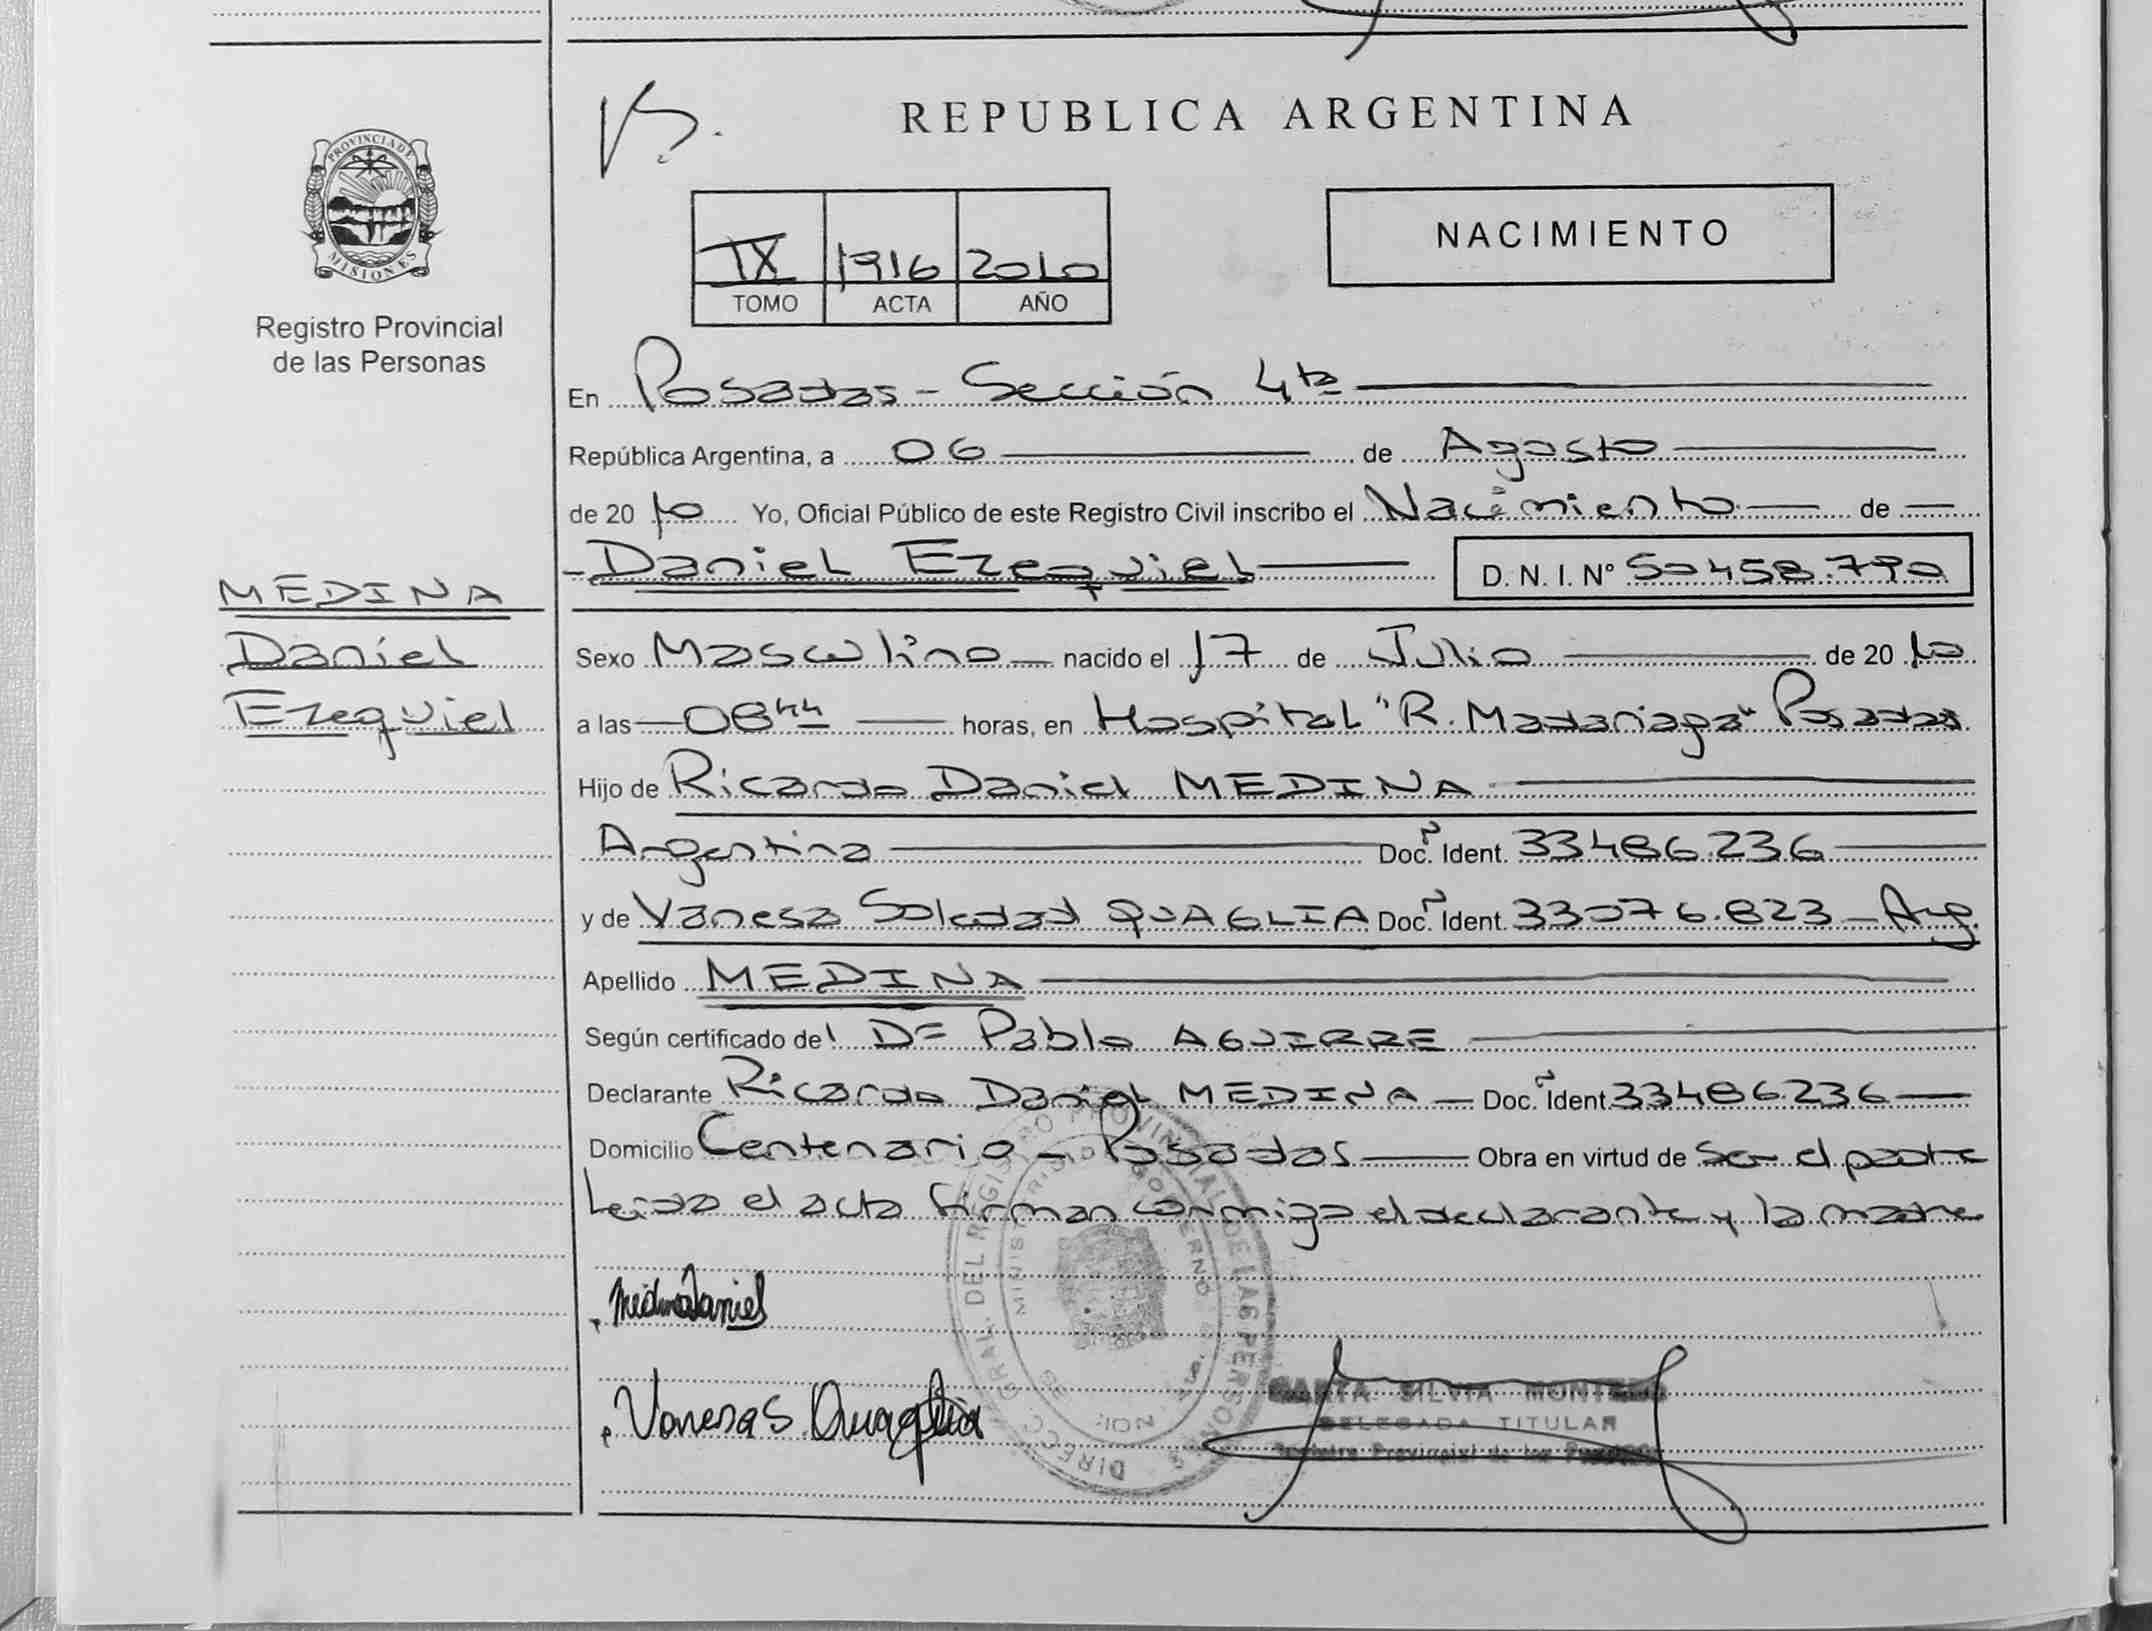 PROVINCIA DE
MISIONES
Registro Provincial
de las Personas
MEDINA
Daniel
Ezequiel
REPUBLICA ARGENTINA
NACIMIENTO
IX 1916 2010
TOMO ACTA AÑO
En Posadas - Sección 4ta
República Argentina, a 06 de Agosto
de 2010 Yo, Oficial Público de este Registro Civil inscribo el Nacimiento de
Daniel Ezequiel D. N. I. Nº 50458.790
Sexo Masculino nacido el 17 de Julio de 2010
a las 08 44 horas, en Hospital "R. Madariaga" Posadas
Hijo de Ricardo Daniel MEDINA
Argentina Doc. Ident. 33486.236
y de Vanesa Soledad QUAGLIA Doc. Ident. 33076.823 - Arg.
Apellido MEDINA
Según certificado del Dr Pablo AGUIRRE
Declarante Ricardo Daniel MEDINA - Doc. Ident. 33486236
Domicilio Centenario - Posadas Obra en virtud de Ser el padre
Leida el acta firman conmigo el declarante y la madre
Medina Daniel
Vanesa S. Quaglia
DIRECC. GRAL. DEL REGISTRO PROVINCIAL DE LAS PERSONAS
MINISTERIO GOBIERNO
SILVIA MONTERO
DELEGADA TITULAR
Registro Provincial de las Personas